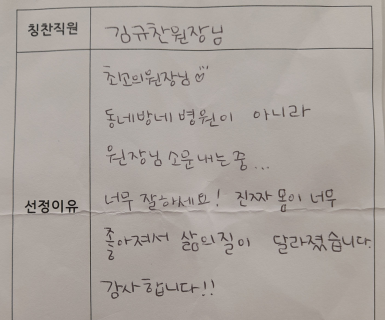 칭찬직원 김규찬원장님
최고의원장님
동네방네 병원이 아니라
원장님 소문내는 중...
선정이유 너무 잘하세요! 진짜 몸이 너무
좋아져서 삶의질이 달라졌습니다.
감사합니다!!